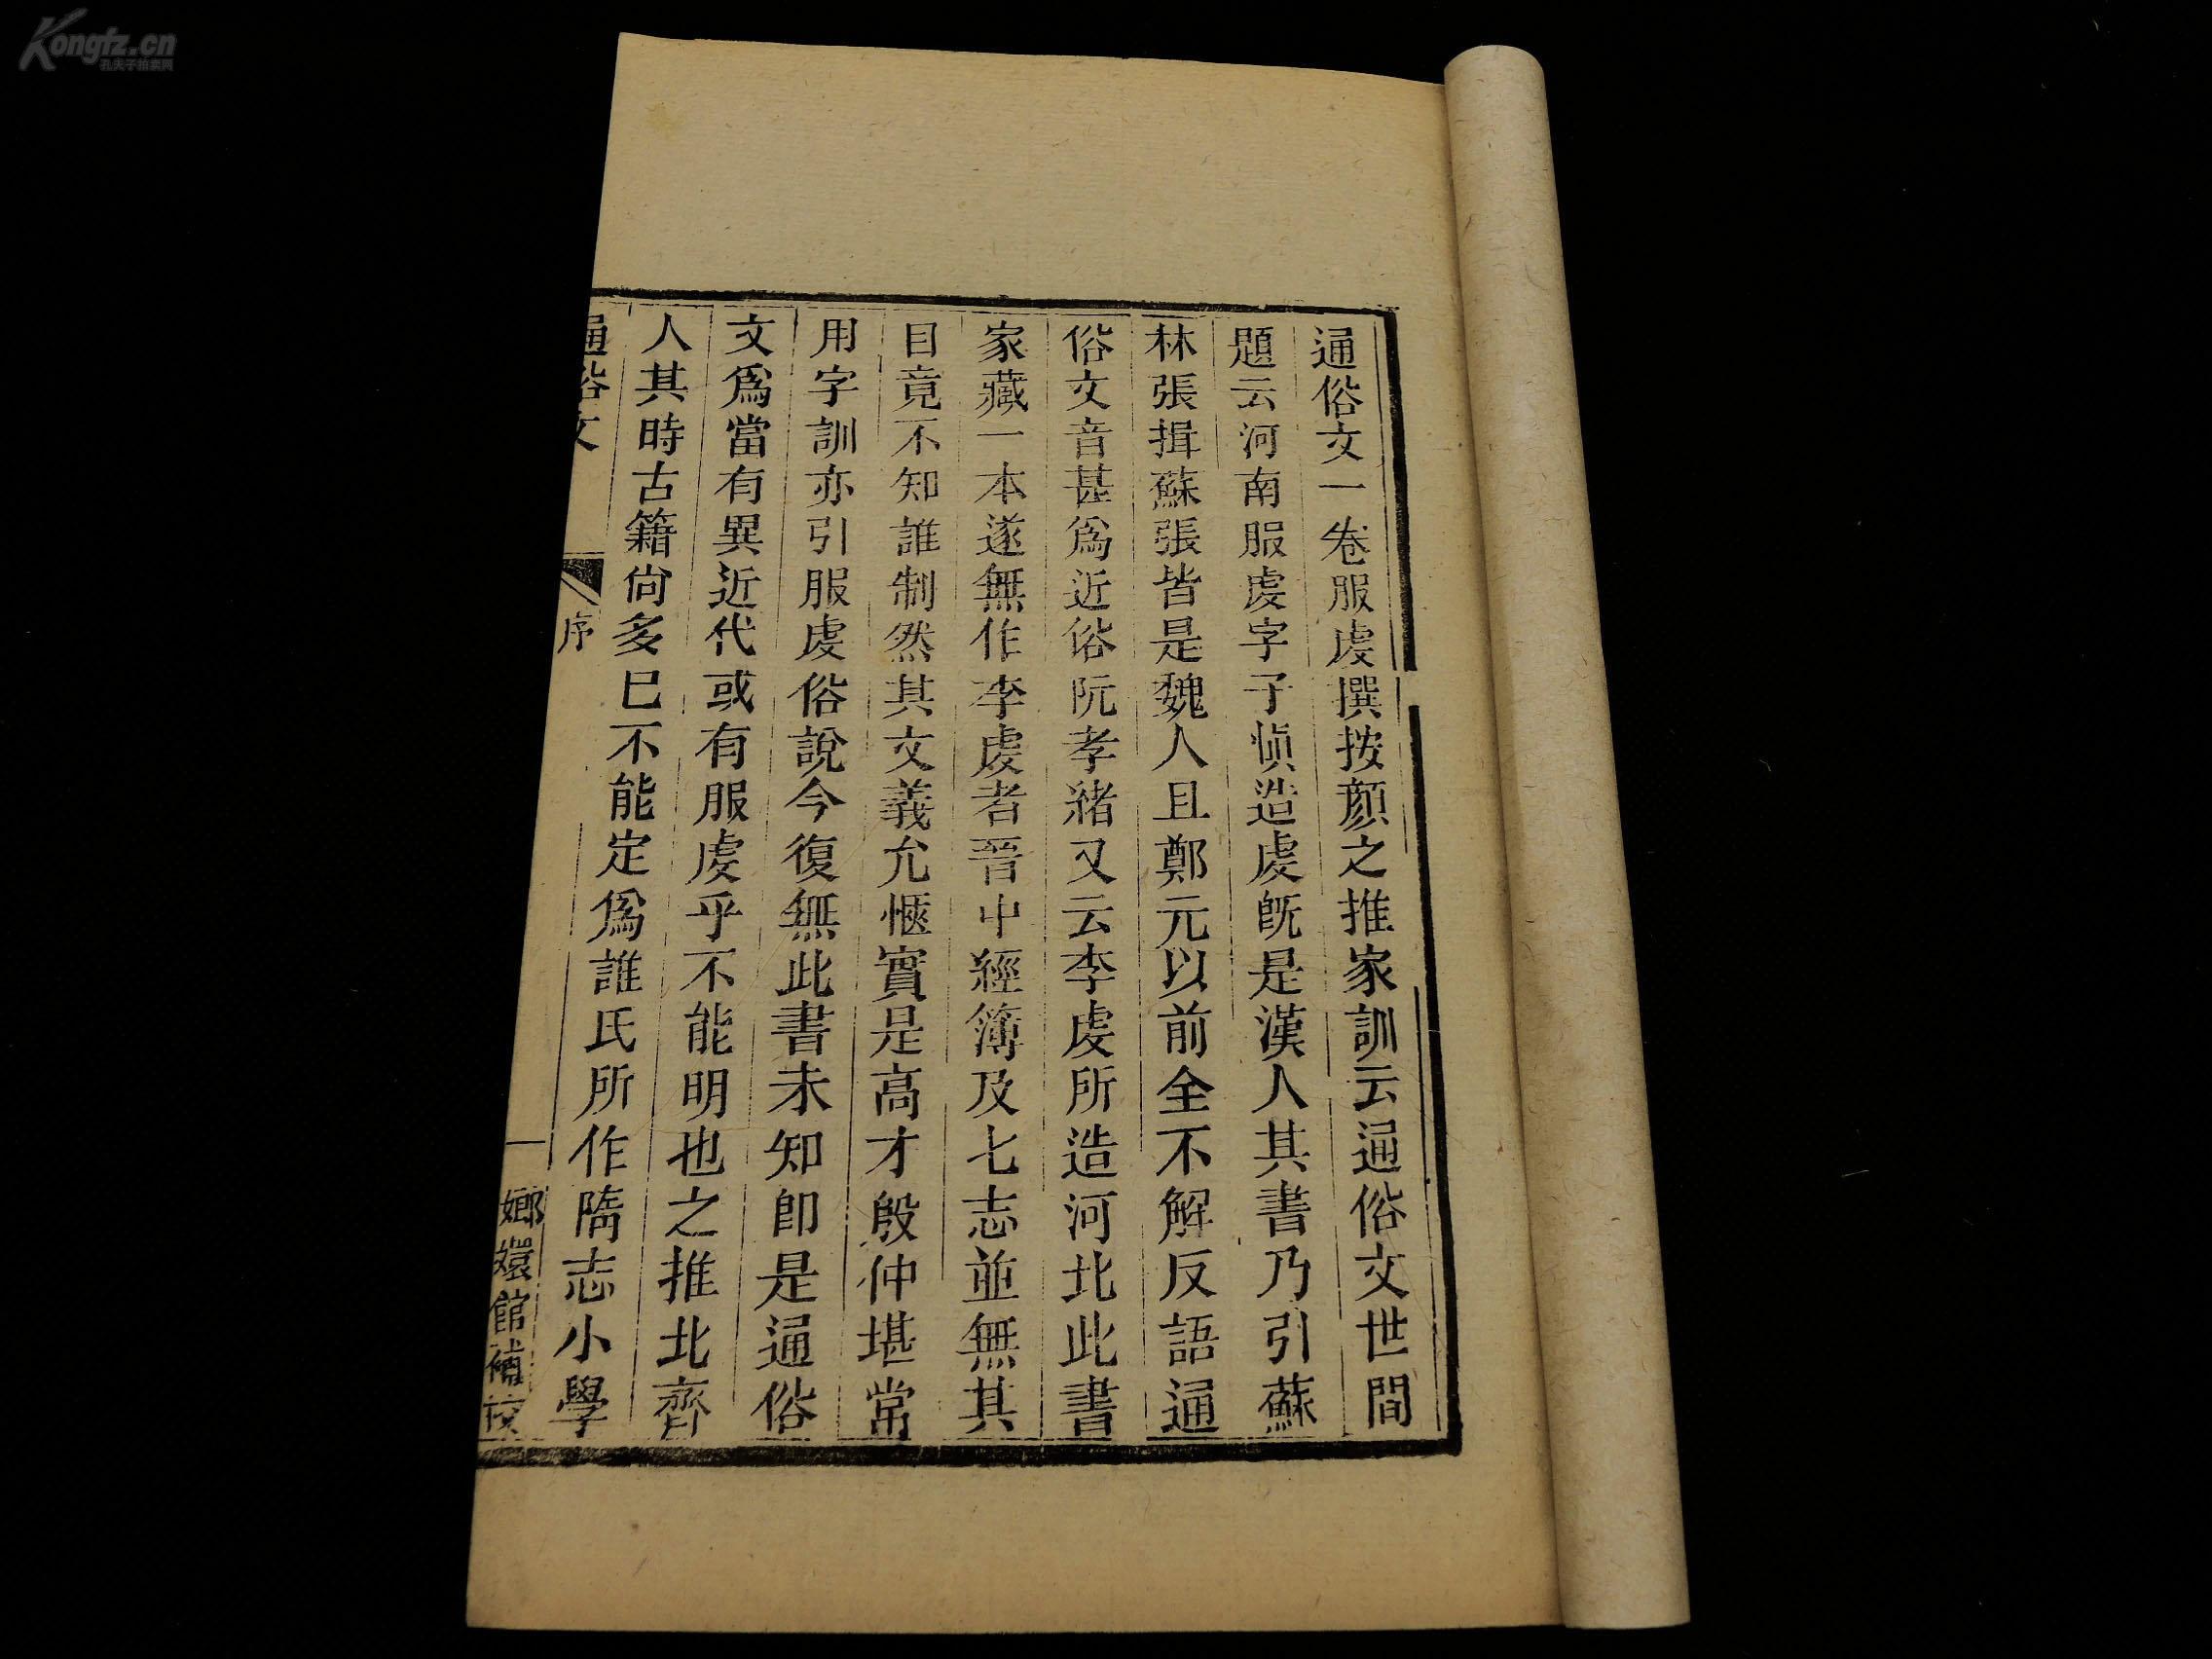 通俗文一卷服虔撰按顏之推家訓云通俗文世間
題云河南服虔字子愼造虔旣是漢人其書乃引蘇
林張揖蘇張皆是魏人且鄭元以前全不解反語通
俗文音甚爲近俗阮孝緒又云李虔所造河北此書
家藏一本遂無作李虔者晉中經簿及七志並無其
目竟不知誰制然其文義允愜實是高才殷仲堪常
用字訓亦引服虔俗說今復無此書未知卽是通俗
文爲當有異近代或有服虔乎不能明也之推北齊
人其時古籍尙多已不能定爲誰氏所作隋志小學
通俗文 序 一 嫏嬛館補校
Kongfz.cn
孔夫子拍卖网